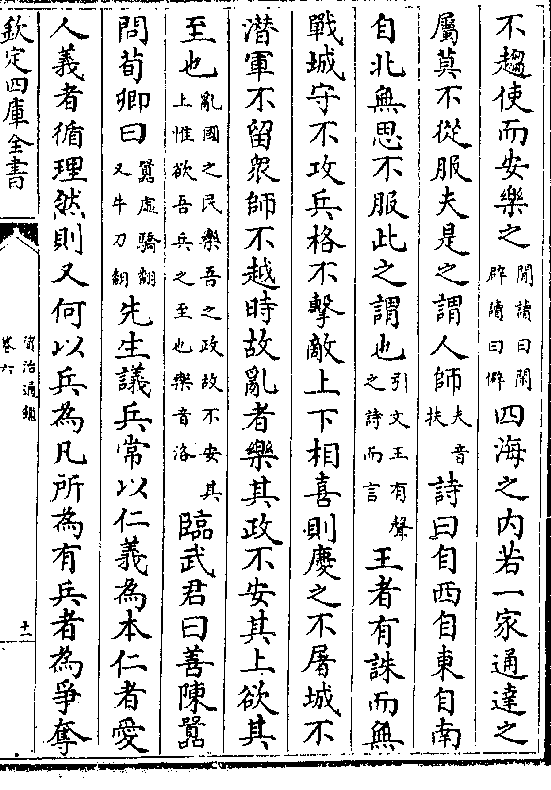 不趨使而安樂之閒讀曰閑辟讀曰僻四海之內若一家通達之
屬莫不從服夫是之謂人師夫音扶詩曰自西自東自南
自北無思不服此之謂也引文王有聲之詩而言王者有誅而無
戰城守不攻兵格不擊敵上下相喜則慶之不屠城不
潜軍不留衆師不越時故亂者樂其政不安其上欲其
至也亂國之民樂吾之政故不安其上惟欲吾兵之至也樂音洛臨武君曰善陳囂
問荀卿曰囂虛驕翻又牛刀翻先生議兵常以仁義為本仁者愛
人義者循理然則又何以兵為凡所為有兵者為爭奪
欽定四庫全書
資治通鑑
卷六
十一